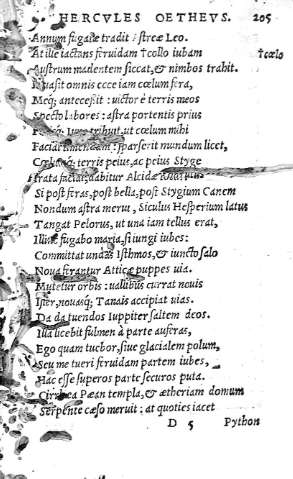 HERCVLES OETHEVS. 205
Annum fugace tradit æstreæ Leo.
At ille iactans feruidam †collo iubam †cœlo
Austrum madentem siccat, & nimbos trahit.
Inuasit omnis ecce iam cœlum fera,
Meq; antecessit: uictor è terris meos
Specto labores: astra portentis prius
ut cœlum mihi
Faciat timendum: sparserit mundum licet,
terris peius, ac peius Styge
Irata faciat, dabitur Alcidæ
Si post feras, post bella, post Stygium Canem
Nondum astra merui, Siculus Hesperium latus
Tangat Pelorus, ut una iam tellus erat,
Illinc fugabo maria, si iungi iubes:
Committat undas Isthmos, & iuncto salo
Noua ferantur Atticæ puppes uia.
Mutetur orbis: uallibus currat nouis
Ister, nouasq; Tanais accipiat uias.
Da da tuendos Iuppiter saltem deos.
Illa licebit fulmen à parte auferas,
Ego quam tuebor, siue glacialem polum,
Seu me tueri feruidam partem iubes,
Hac esse superos parte securos puta.
Cirrhæa Pæan templa, & ætheriam domum
Serpente cæso meruit: at quoties iacet
D 5 Python